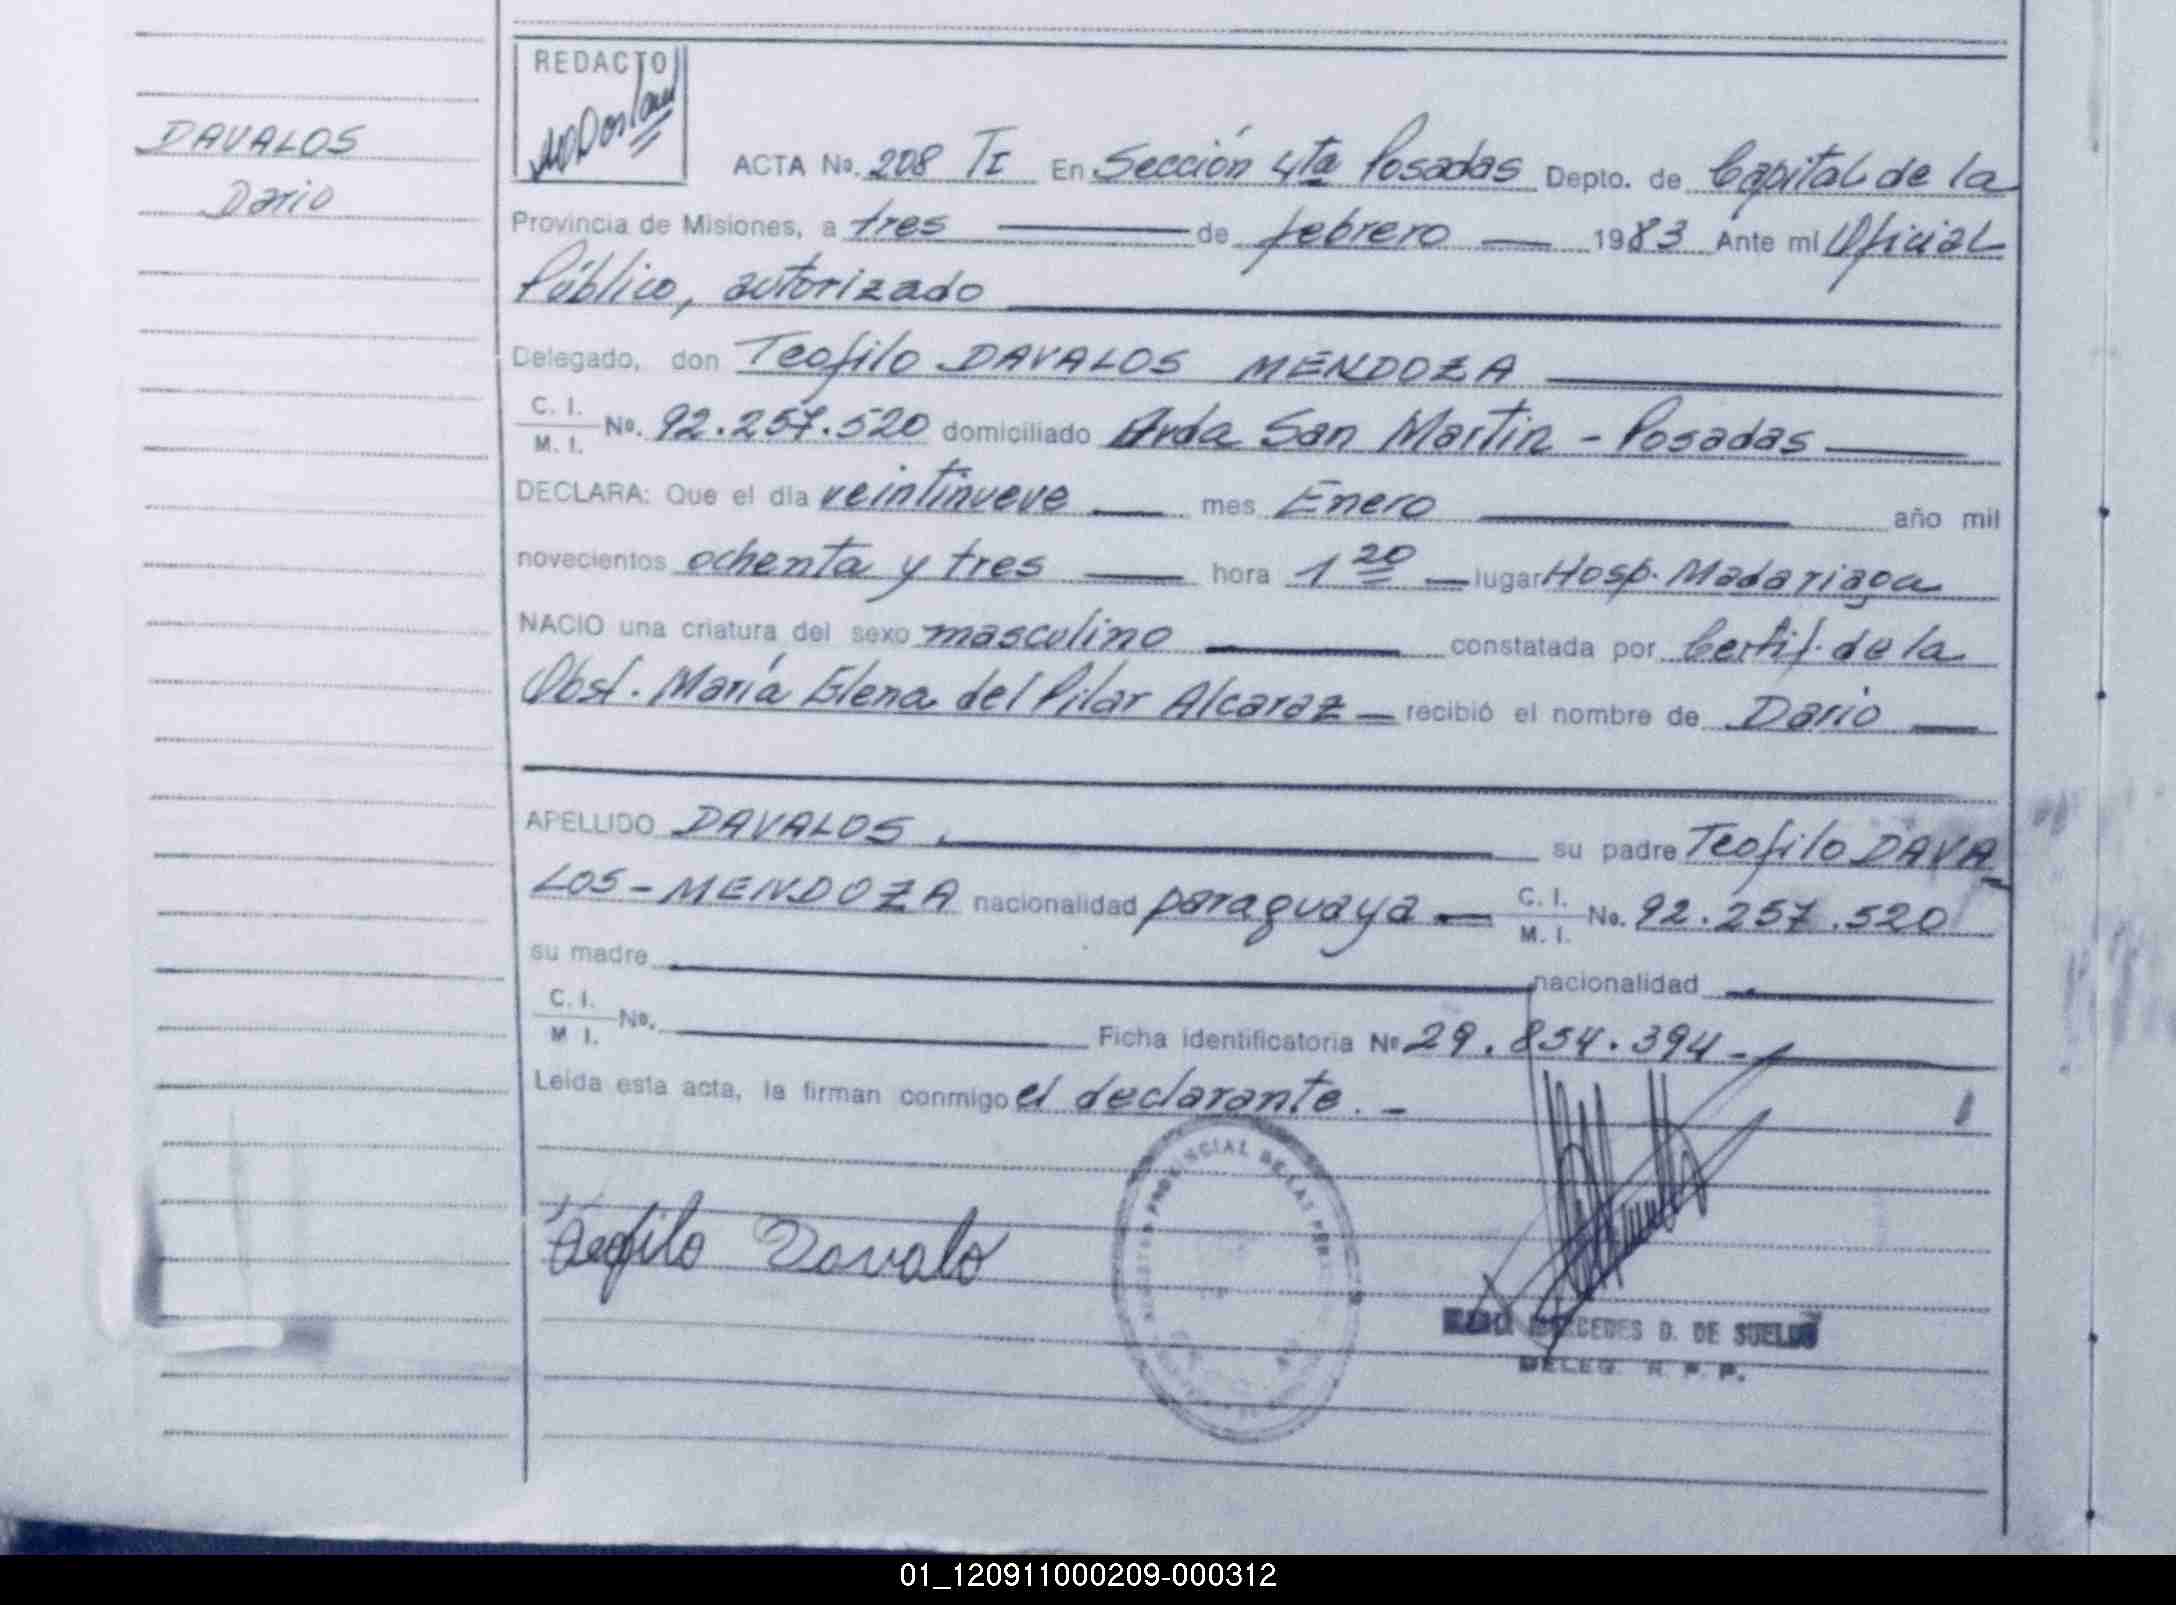 REDACTO
DAVALOS
Dario
ACTA No. 208 TI En Sección 4ta Posadas Depto. de Capital de la
Provincia de Misiones, a tres de febrero 1983 Ante mi Oficial
Público, autorizado
Delegado, don Teofilo DAVALOS MENDOZA
C. I.
M. I. No. 92.257.520 domiciliado Avda San Martin - Posadas
DECLARA: Que el dia veintinueve mes Enero año mil
novecientos ochenta y tres hora 1 20 lugar Hosp. Madariaga
NACIO una criatura del sexo masculino constatada por Certif. de la
Obst. María Elena del Pilar Alcaraz recibió el nombre de Dario
APELLIDO DAVALOS su padre Teofilo DAVA
LOS - MENDOZA nacionalidad paraguaya C. I.
M. I. No. 92.257.520
su madre nacionalidad
C. I.
M I. No. Ficha identificatoria No 29.854.394 -
Leida esta acta, la firman conmigo el declarante. -
Teofilo Davalo
PROVINCIAL DE LAS PER
MERCEDES D. DE SUELDO
DELEG. R. P. P.
01_120911000209-000312